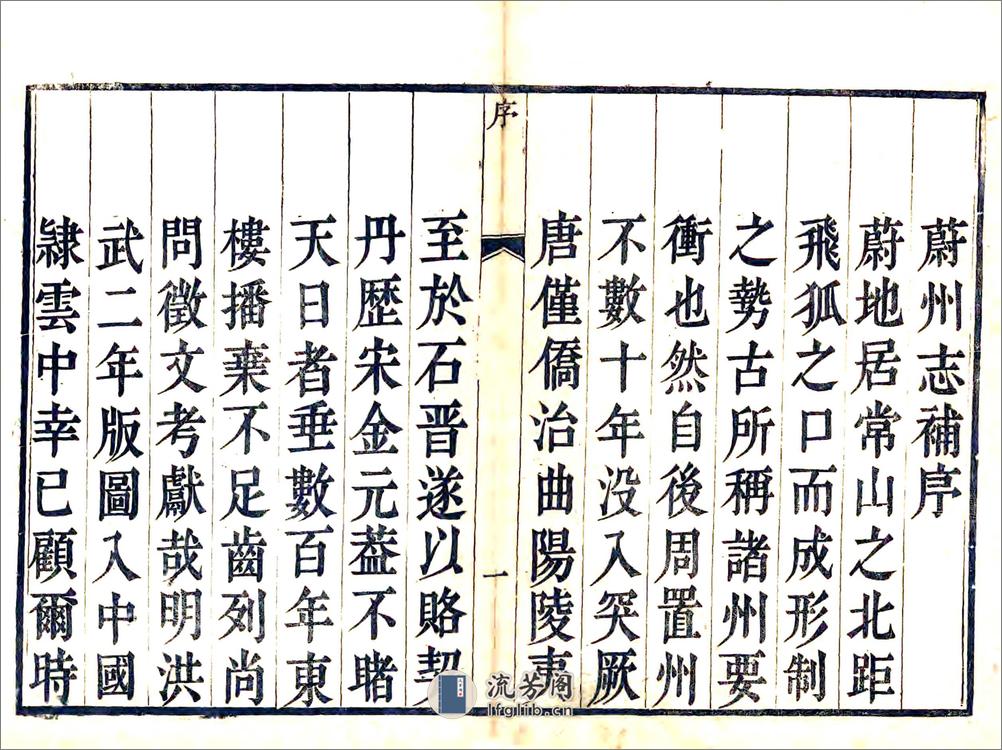 蔚州志補序
蔚地居常山之北距
飛狐之口而成形制
之勢古所稱諸州要
衝也然自後周置州
不數十年没入突厥
唐僅僑治曲陽陵夷
序
一
至於石晋遂以賂契
丹歴宋金元葢不睹
天日者垂數百年東
樓播棄不足齒列尚
問徵文考獻哉明洪
武二年版圖入中國
隷雲中幸已顧爾時
流芳阁
lfglib.cn